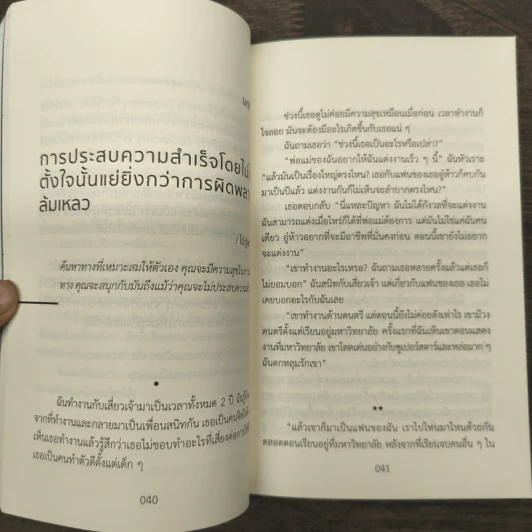 บท
การประสบความสำเร็จโดยไม่
ตั้งใจนั้นแย่ยิ่งกว่าการผิดพลา
ล้มเหลว
ค้นหาทางที่เหมาะสมให้ตัวเอง คุณจะมีความสุขใน
ทาง คุณจะสนุกกับมันถึงแม้ว่าคุณจะไม่ประสบความ
•
ฉันทำงานกับเสี่ยวเจ้ามาเป็นเวลาทั้งหมด 2 ปี ฉันรู้
จากที่ทำงานและกลายมาเป็นเพื่อนสนิทกัน เธอเป็นคน
เห็นเธอทำงานแล้วรู้สึกว่าเธอไม่ชอบทำอะไรที่เสี่ยงต่อ
เธอเป็นคนทำตัวดีตั้งแต่เด็ก ๆ
040
ช่วงนี้เธอดูไม่ค่อยมีความสุขเหมือนเมื่อก่อน เวลาทำงานก็
ใจลอย มันจะต้องมีอะไรเกิดขึ้นกับเธอแน่ ๆ
ฉันถามเธอว่า "ช่วงนี้เธอเป็นอะไรหรือเปล่า?"
"พ่อแม่ของฉันอยากให้ฉันแต่งงานเร็ว ๆ นี้" ฉันหัวเราะ
"แล้วมันเป็นเรื่องใหญ่ตรงไหน? เธอกับแฟนของเธออู๋ห้าวก็คบกัน
มาเป็นปีแล้ว แต่งงานกันก็ไม่เห็นจะลำบากตรงไหน?"
เธอตอบกลับ "นี่แหละปัญหา ฉันไม่ได้กังวลที่จะแต่งงาน
ฉันสามารถแต่งเมื่อไหร่ก็ได้ที่พ่อแม่ต้องการ แต่มันไม่ใช่แค่ฉันคน
เดียว อู๋ห้าวอยากที่จะมีอาชีพที่มั่นคงก่อน ตอนนี้เขายังไม่อยาก
จะแต่งงาน"
"เขาทำงานอะไรเหรอ? ฉันถามเธอหลายครั้งแล้วแต่เธอก็
ไม่ยอมบอก" ฉันสนิทกับเสี่ยวเจ้า แต่เกี่ยวกับแฟนของเธอ เธอไม่
เคยบอกอะไรกับฉันเลย
"เขาทำงานด้านดนตรี แต่ตอนนี้ยังไม่ค่อยดังเท่าไร เขามีวง
ดนตรีตั้งแต่เรียนอยู่มหาวิทยาลัย ครั้งแรกที่ฉันเห็นเขาตอนแสดง
งานที่มหาวิทยาลัย เขาโดดเด่นอย่างกับซูเปอร์สตาร์และหล่อมาก ๆ
ฉันตกหลุมรักเขา"
••
"แล้วเขาก็มาเป็นแฟนของฉัน เราไปไหนมาไหนด้วยกัน
ตลอดตอนเรียนอยู่ที่มหาวิทยาลัย หลังจากที่เรียนจบคนอื่น ๆ ใน
041